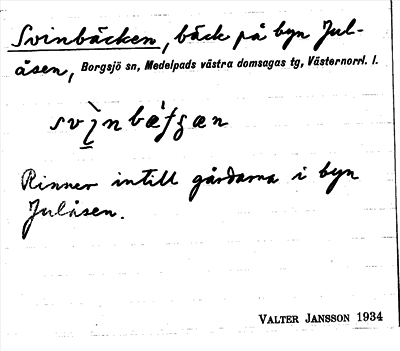 Svinbäcken, bäck på byn Jul-
åsen, Borgsjö sn, Medelpads västra domsagas tg, Västernorrl. l.
Rinner intill gårdarna i byn
Julåsen.
VALTER JANSSON 1934